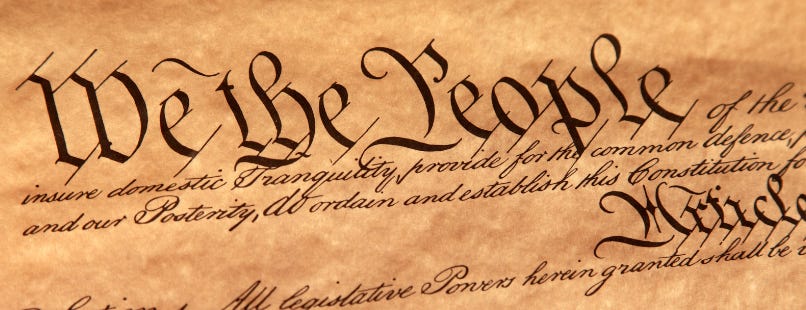 We the People of the
insure domestic Tranquility, provide for the common defence,
and our Posterity, do ordain and establish this Constitution
Article
All legislative Powers herein granted shall be